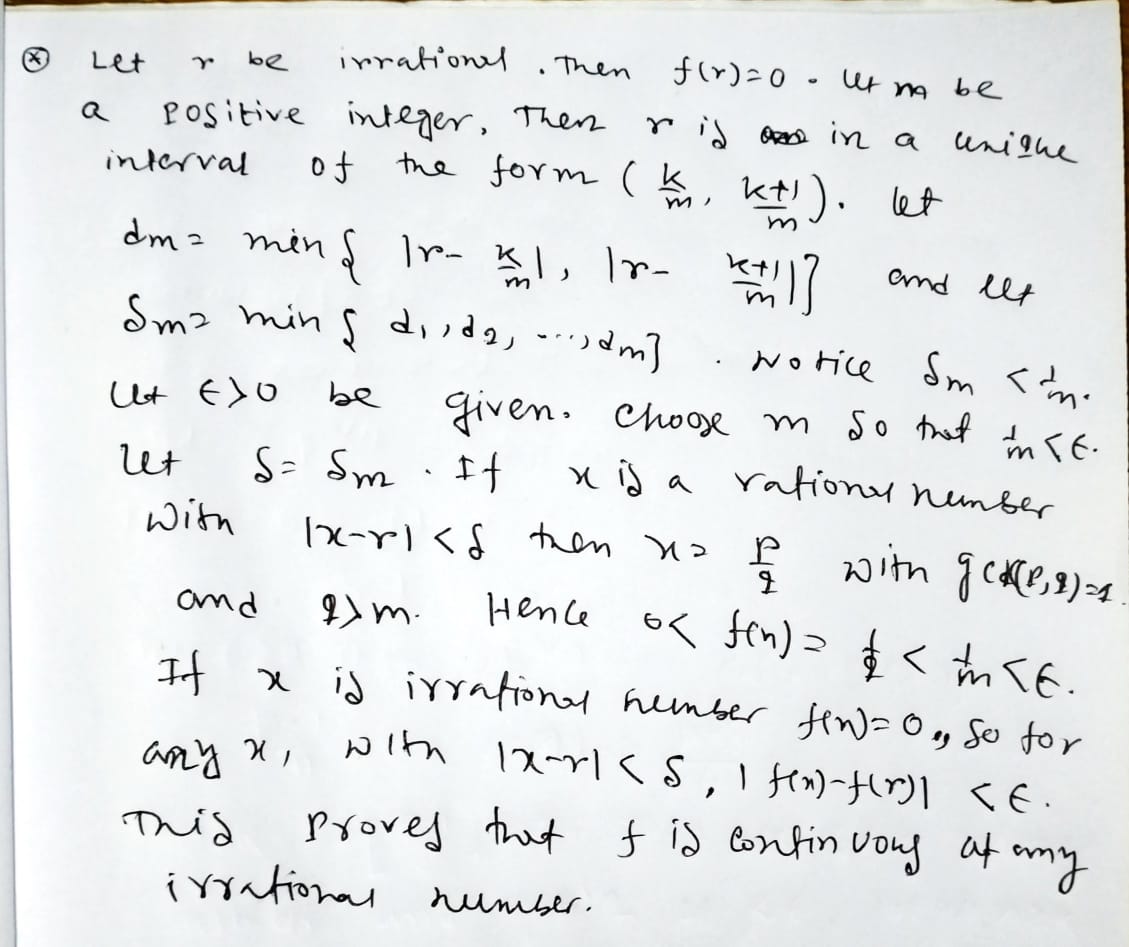 ⊛ Let r be irrational. Then f(r)=0. Let m be
a positive integer, Then r is in a unique
interval of the form (k/m, (k+1)/m). let
dm = min { |r - k/m|, |r - (k+1)/m| } and let
δm = min { d1, d2, ..., dm }. Notice δm < 1/m.
Let ϵ>0 be given. Choose m so that 1/m < ϵ.
Let δ = δm. If x is a rational number
with |x-r| < δ then x = p/q with gcd(p,q)=1
and q>m. Hence 0 < f(x) = 1/q < 1/m < ϵ.
If x is irrational number f(x)=0, so for
any x, with |x-r| < δ, |f(x)-f(r)| < ϵ.
This proves that f is continuous at any
irrational number.